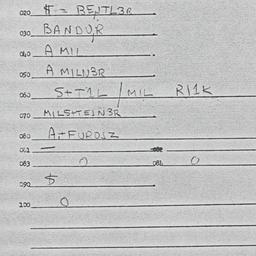 020 $ = BENTL3R
030 BANDUR
040 A MIL
050 A MILN3R
060 S+T1L / MIL R11K
070 MILS+TEIN3R
080 A+FUROSZ
081 —
083 0 084 0
090 $
100 0